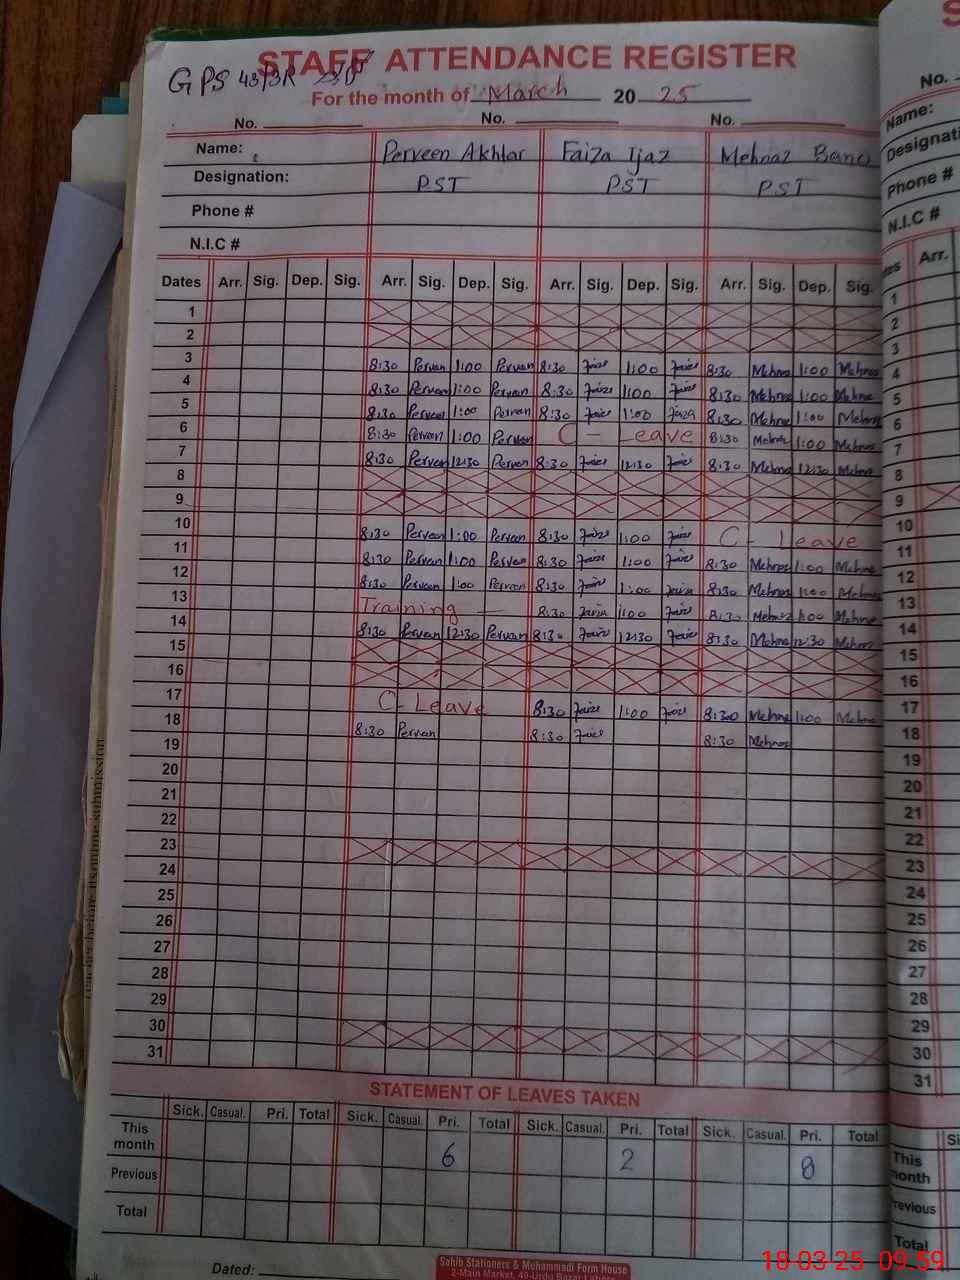 STAFF ATTENDANCE REGISTER
GPS 43/3R
For the month of March 20 25
No. No. No.
Name: Perveen Akhtar Faiza Ijaz Mehnaz Bano
Designation: PST PST PST
Phone #
N.I.C #
Dates Arr. Sig. Dep. Sig. Arr. Sig. Dep. Sig. Arr. Sig. Dep. Sig. Arr. Sig. Dep. Sig.
1
2
3 8:30 Pervan 1:00 Pervan 8:30 Faiza 1:00 Faiza 8:30 Mehnaz 1:00 Mehnaz
4 8:30 Pervan 1:00 Pervan 8:30 Faiza 1:00 Faiza 8:30 Mehnaz 1:00 Mehnaz
5 8:30 Pervan 1:00 Pervan 8:30 Faiza 1:00 Faiza 8:30 Mehnaz 1:00 Mehnaz
6 8:30 Pervan 1:00 Pervan C - Leave 8:30 Mehnaz 1:00 Mehnaz
7 8:30 Pervan 12:30 Pervan 8:30 Faiza 12:30 Faiza 8:30 Mehnaz 12:30 Mehnaz
8
9
10 8:30 Pervan 1:00 Pervan 8:30 Faiza 1:00 Faiza C - Leave
11 8:30 Pervan 1:00 Pervan 8:30 Faiza 1:00 Faiza 8:30 Mehnaz 1:00 Mehnaz
12 8:30 Pervan 1:00 Pervan 8:30 Faiza 1:00 Faiza 8:30 Mehnaz 1:00 Mehnaz
13 Training — 8:30 Faiza 1:00 Faiza 8:30 Mehnaz 1:00 Mehnaz
14 8:30 Pervan 12:30 Pervan 8:30 Faiza 12:30 Faiza 8:30 Mehnaz 12:30 Mehnaz
15
16
17 C- Leave 8:30 Faiza 1:00 Faiza 8:30 Mehnaz 1:00 Mehnaz
18 8:30 Pervan 8:30 Faiza 8:30 Mehnaz
19
20
21
22
23
24
25
26
27
28
29
30
31
STATEMENT OF LEAVES TAKEN
Sick. Casual. Pri. Total Sick. Casual. Pri. Total Sick. Casual. Pri. Total Sick. Casual. Pri. Total
This month 6 2 8
Previous
Total
Dated:
Sahib Stationers & Mohammadi Form House
2-Main Market, 49-Urdu Bazar Lahore
S
No.
Name:
Designati
Phone #
N.I.C #
tes Arr.
1
2
3
4
5
6
7
8
9
10
11
12
13
14
15
16
17
18
19
20
21
22
23
24
25
26
27
28
29
30
31
Si
This
month
revious
Total
18-03-25 09:59